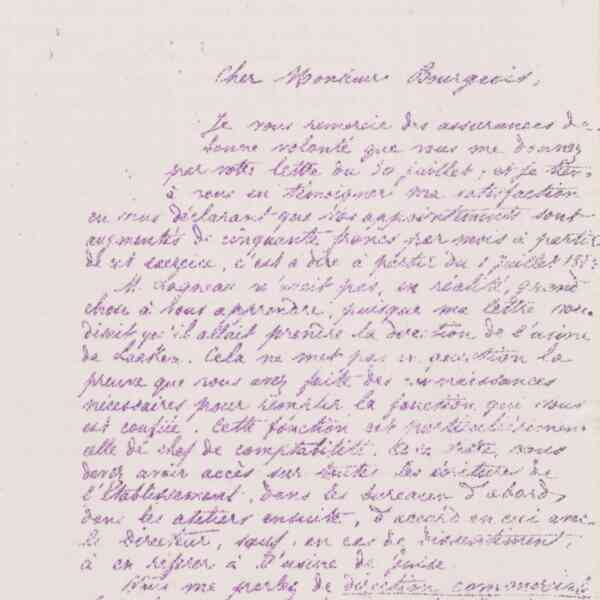 Cher Monsieur Bourgeois,
Je vous remercie des assurances de
bonne volonté que vous me donnez
par votre lettre du 30 juillet; et je tiens
à vous en témoigner ma satisfaction
en vous déclarant que vos appointements sont
augmentés de cinquante francs par mois à partir
de cet exercice, c'est à dire à partir du 1 juillet
M. n'avait pas, en réalité, grand
chose à vous apprendre, puisque ma lettre vous
disait qu'il allait prendre la direction de l'usine
de Laeken. Cela ne met pas en question la
preuve que vous avez faite des connaissances
nécessaires pour remplir la fonction qui vous
est confiée. Cette fonction est particulièrement
celle de chef de comptabilité. vous
devez avoir accès sur toutes les écritures de
l'établissement, dans les bureaux d'abord,
dans les ateliers ensuite, d'accord en cui avec
le Directeur, sauf, en cas de dissentiment,
à en référer à l'usine de Guise.
Vous me parlez de direction commerciale